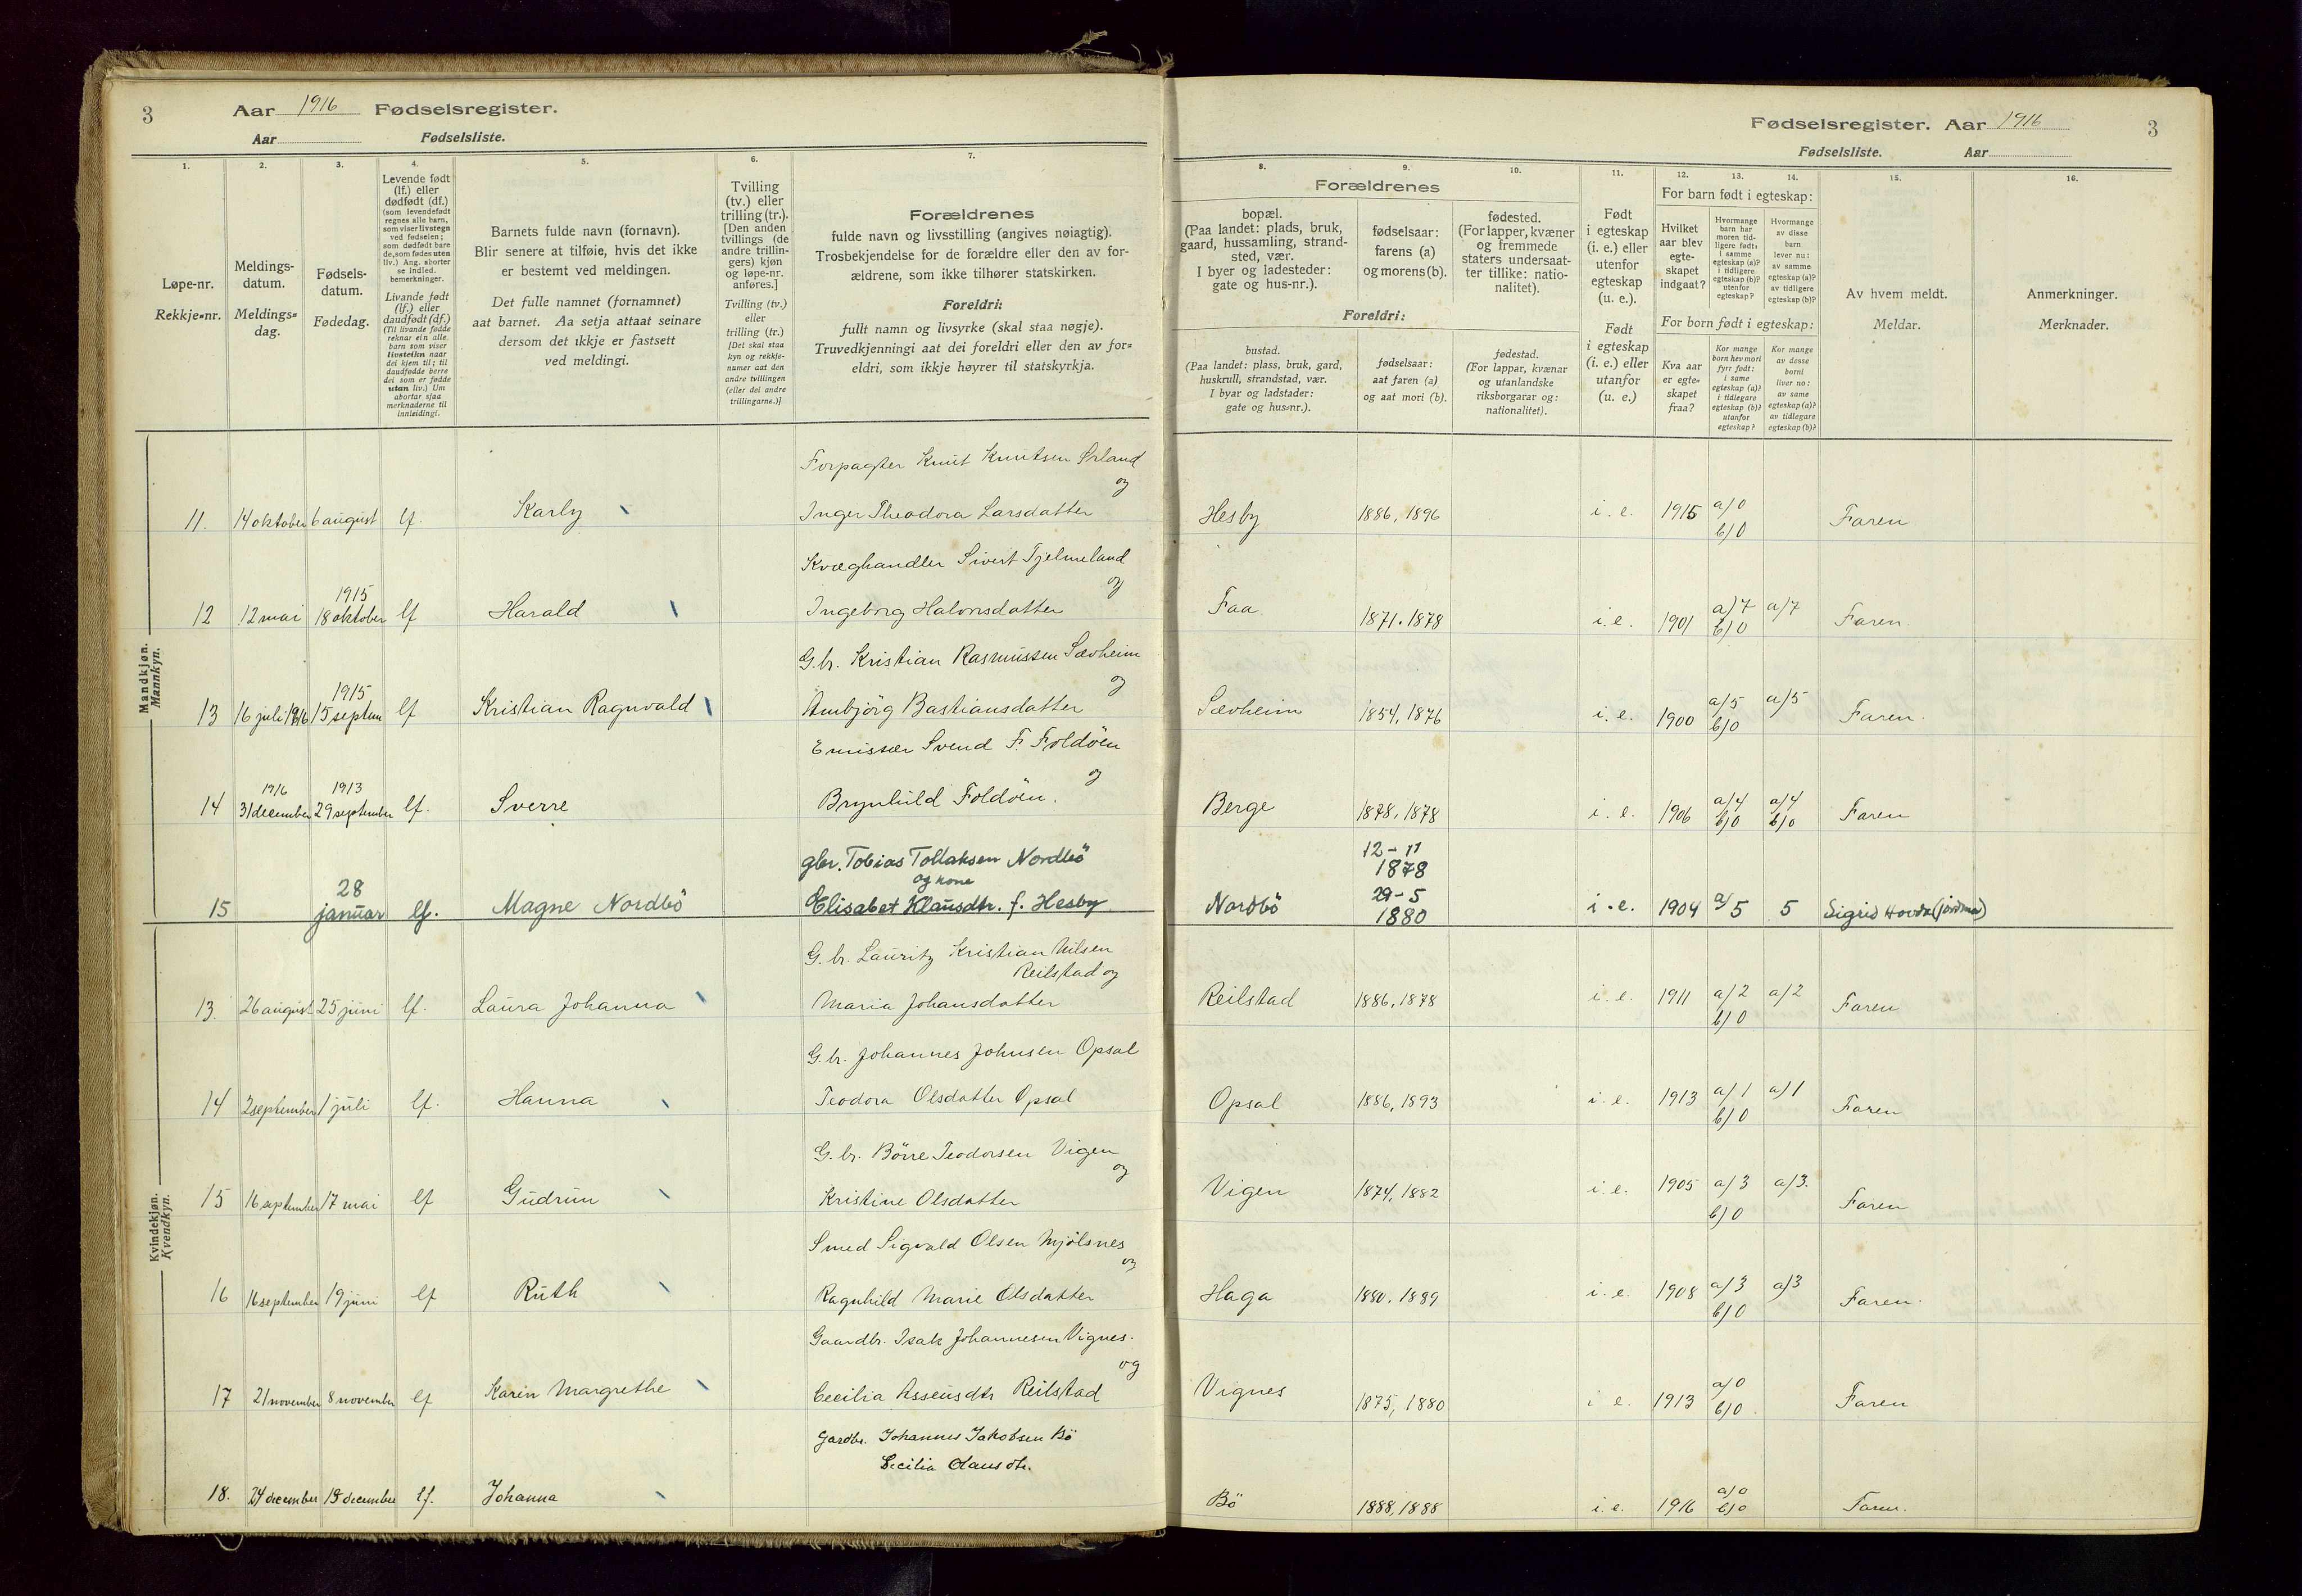 3
Aar 1916 Fødselsregister.
Aar Fødselsliste.
Fødselsregister. Aar 1916
3
Fødselsliste. Aar
1.
Løpe-nr.
Rekkje=nr.
2.
Meldings-
datum.
Meldings=
dag.
3.
Fødsels-
datum.
Fødedag.
4.
Levende født
(lf.) eller
dødfødt (df.)
(som levendefødt
regnes alle barn,
som viser livstegn
ved fødselen;
som dødfødt bare
de, som fødes uten
liv.) Ang. aborter
se indled.
bemerkninger.
Livande født
(lf.) eller
daudfødt (df.)
(Til livande fødde
reknar ein alle
barn som viser
livsteikn naar
dei kjem til; til
daudfødde berre
dei som er fødde
utan liv.) Um
abortar sjaa
merknaderne til
innleidingi.
5.
Barnets fulde navn (fornavn).
Blir senere at tilføie, hvis det ikke
er bestemt ved meldingen.
Det fulle namnet (fornamnet)
aat barnet. Aa setja attaat seinare
dersom det ikkje er fastsett
ved meldingi.
6.
Tvilling
(tv.) eller
trilling (tr.).
[Den anden
tvillings (de
andre trillin-
gers) kjøn
og løpe-nr.
anføres.]
Tvilling (tv.)
eller
trilling (tr.)
[Det skal staa
kyn og rekkje-
numer aat den
andre tvillingen
(eller dei andre
trillingarne.)]
7.
Forældrenes
fulde navn og livsstilling (angives nøiagtig).
Trosbekjendelse for de forældre eller den av for-
ældrene, som ikke tilhører statskirken.
Foreldri:
fullt namn og livsyrke (skal staa nøgje).
Truvedkjenningi aat dei foreldri eller den av for=
eldri, som ikkje høyrer til statskyrkja.
8.
Forældrenes
bopæl.
(Paa landet: plads, bruk,
gaard, hussamling, strand-
sted, vær.
I byer og ladesteder:
gate og hus-nr.).
Foreldri:
bustad.
(Paa landet: plass, bruk, gard,
huskrull, strandstad, vær.
I byar og ladstader:
gate og hus=nr.).
9.
fødselsaar:
farens (a)
og morens (b).
fødselsaar:
aat faren (a)
og aat mori (b).
10.
fødested.
(For lapper, kvæner
og fremmede
staters undersaat-
ter tillike: natio-
nalitet).
fødestad.
(For lappar, kvænar
og utanlandske
riksborgarar og:
nationalitet).
11.
Født
i egteskap
(i. e.) eller
utenfor
egteskap
(u. e.).
Født
i egteskap
(i. e.) eller
utanfor
(u. e.)
For barn født i egteskap:
12.
Hvilket
aar blev
egte-
skapet
indgaat?
13.
Hvormange
barn har
moren tid-
ligere født:
i samme
egteskap (a)?
i tidligere
egteskap (b)?
utenfor
egteskap?
14.
Hvormange
av disse
barn
lever nu:
av samme
egteskap (a)?
av tidligere
egteskap (b)?
For born født i egteskap:
Kva aar
er egte=
skapet
fraa?
Kor mange
born hev mori
fyrr født:
i same
egteskap (a)?
i tidlegare
egteskap (b)?
utanfor
egteskap?
Kor mange
av desse
borni
liver no:
av same
egteskap (a)?
av tidlegare
egteskap (b)?
15.
Av hvem meldt.
Meldar.
16.
Anmerkninger.
Merknader.
Mandkjøn.
Mannkyn.
Forpagter Knut Knutsen Ørland
og
11. 14 oktober 6 august lf. Karly Inger Theodora Larsdatter Hesby 1886, 1896 i. e. 1915 a/0 Faren
b/0
Kvæghandler Sivert Tjelmeland
1915 og
12 12 mai 18 oktober lf Harald Ingeborg Halvorsdatter Faa 1871. 1878 i. e. 1901 a/7 a/7 Faren
b/0
G.br. Kristian Rasmussen Sævheim
1915 og
13 16 juli 1916 15 septem lf Kristian Ragnvald Ambjörg Bastiansdatter Sævheim 1854, 1876 i. e. 1900 a/5 a/5 Faren.
b/0
Emissær Svend F. Foldöen
1916 1913 og
14 31 december 29 september lf. Sverre Brynhild Foldöen. Berge 1878, 1878 i. e. 1906 a/4 a/4 Faren
b/0 b/0
gbr. Tobias Tollaksen Nordbö 12-11
28 og kone 1878
29-5
15 januar lf. Magne Nordbö Elisabet Klausdtr. f. Hesby Nordbö 1880 i. e. 1904 a/5 5 Sigrid Hovda (jordmor)
Kvindekjøn.
Kvendkyn.
G.br. Lauritz Kristian Nilsen
Reilstad og
13. 26 august 25 juni lf. Laura Johanna Maria Johansdatter Reilstad 1886, 1878 i. e. 1911 a/2 a/2 Faren
b/0
G.br. Johannes Johnsen Opsal
14 2 september 1 juli lf. Hanna Teodora Olsdatter Opsal Opsal 1886, 1893 i. e. 1913 a/1 a/1 Faren
b/0
G.br. Börre Teodorsen Vigen
og
15 16 september 17 mai lf Gudrun Kristine Olsdatter Vigen 1874, 1882 i. e. 1905 a/3 a/3. Faren
b/0
Smed Sigvald Olsen Mjölsnes
og
16 16 september 19 juni lf Ruth Ragnhild Marie Olsdatter Haga 1880, 1889 i. e. 1908 a/3 a/3 Faren.
b/0
Gaardbr. Isak Johannesen Vignes.
og
17 21 november 8 november lf Karin Margrethe Cecilia Assensdtr Reilstad Vignes 1875, 1880 i e. 1913 a/0 Faren
b/0
Gardbr. Johannes Jakobsen Bö
Cecilia Olausdtr.
18. 24 december 19 december lf. Johanna Bö 1888, 1888 i. e. 1916 a/0 Faren.
b/0